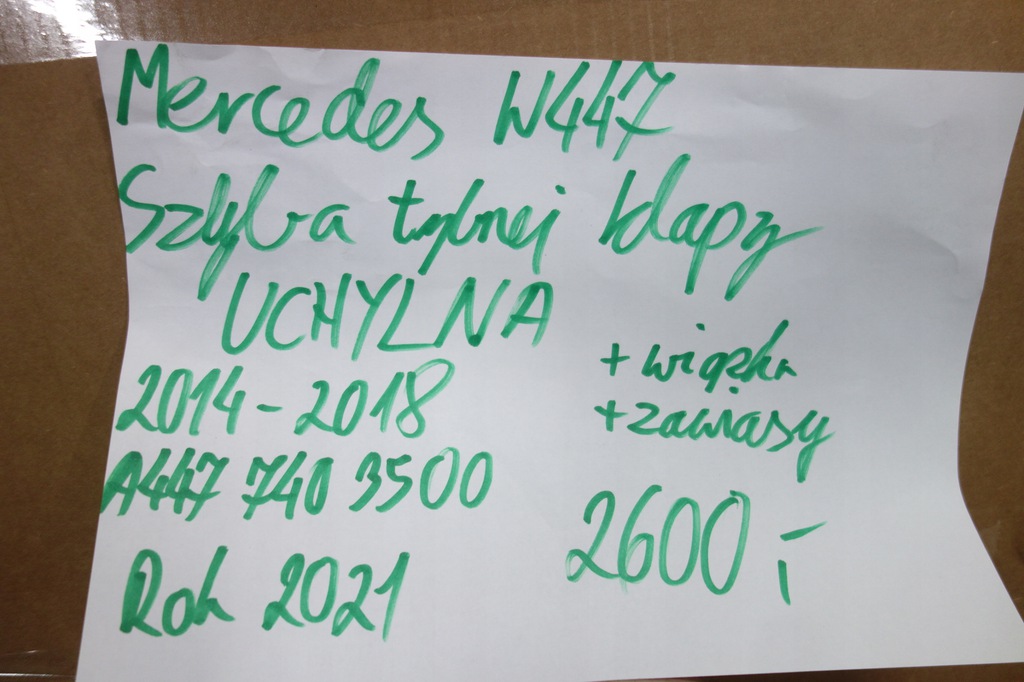 Mercedes W447
Szyba tylnej klapy
UCHYLNA
2014-2018
+ wiązka
+ zawiasy
A447 740 3500
2600,-
Rok 2021